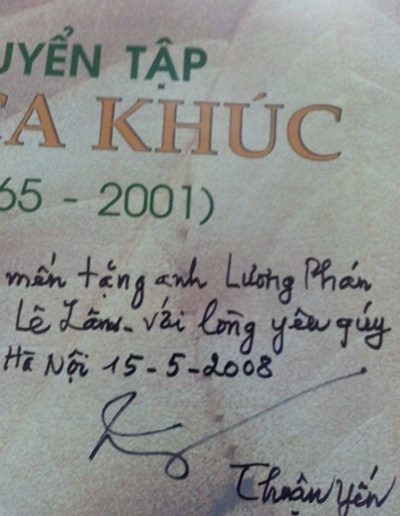 UYỂN TẬP
CA KHÚC
65 - 2001)
mến tặng anh Lương Phán
Lê Lâm - với lòng yêu quý
Hà Nội 15-5-2008
Thuận Yến